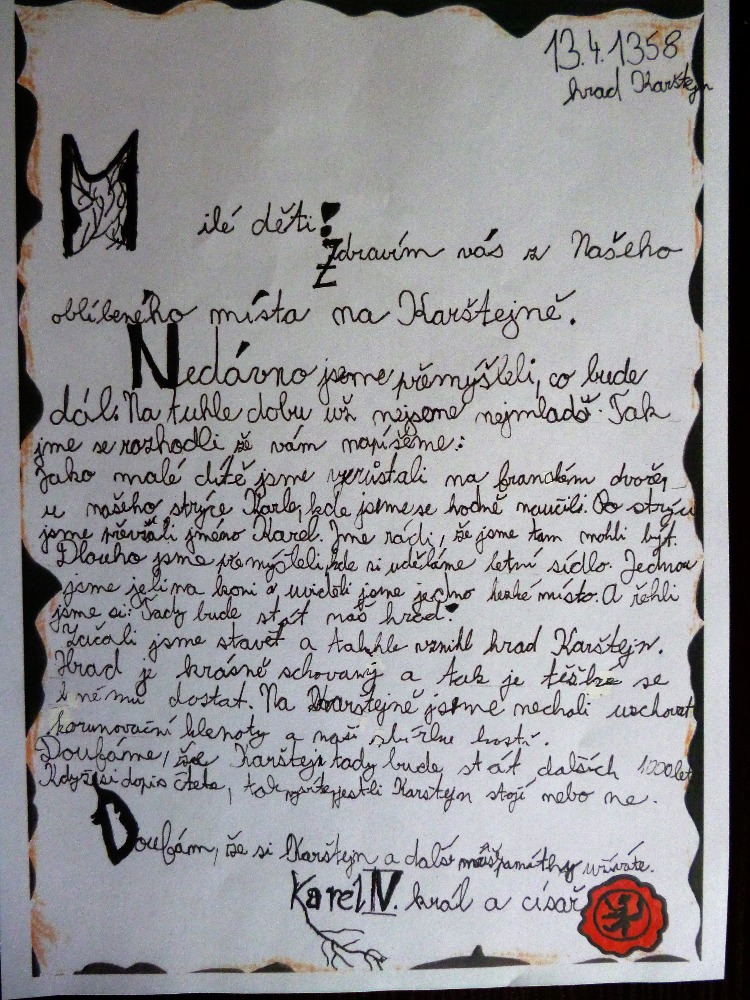 13.4.1358
hrad Karštejn
Milé děti!
Zdravím vás z Našeho
oblíbeného místa na Karštejně.
Nedávno jsme přemýšleli, co bude
dál. Na tuhle dobu už nejsme nejmladší. Tak
jme se rozhodli že vám napíšeme:
Jako malé dítě jsme vyrůstali na franckém dvoře,
u našeho strýce Karla, kde jsme se hodně naučili. Po strýci
jsme převzali jméno Karel. Jme rádi, že jsme tam mohli být.
Dlouho jsme přemýšleli, kde si uděláme letní sídlo. Jednou
jsme jeli na koni a uviděli jsme jedno hezké místo. A řekli
jsme si: Tady bude stát náš hrad.
Začali jsme stavět a takhle vznikl hrad Karštejn.
Hrad je krásně schovaný a tak je těžké se
k němu dostat. Na Karštejně jsme nechali uschovat
korunovační klenoty a naši sbírku kostí.
Doufáme, že Karštejn tady bude stát dalších 1000 let
Když si dopis čtete, tak jestli Karštejn stojí nebo ne.
Doufám, že si Karštejn a další památky užíváte.
Karel IV. král a císař